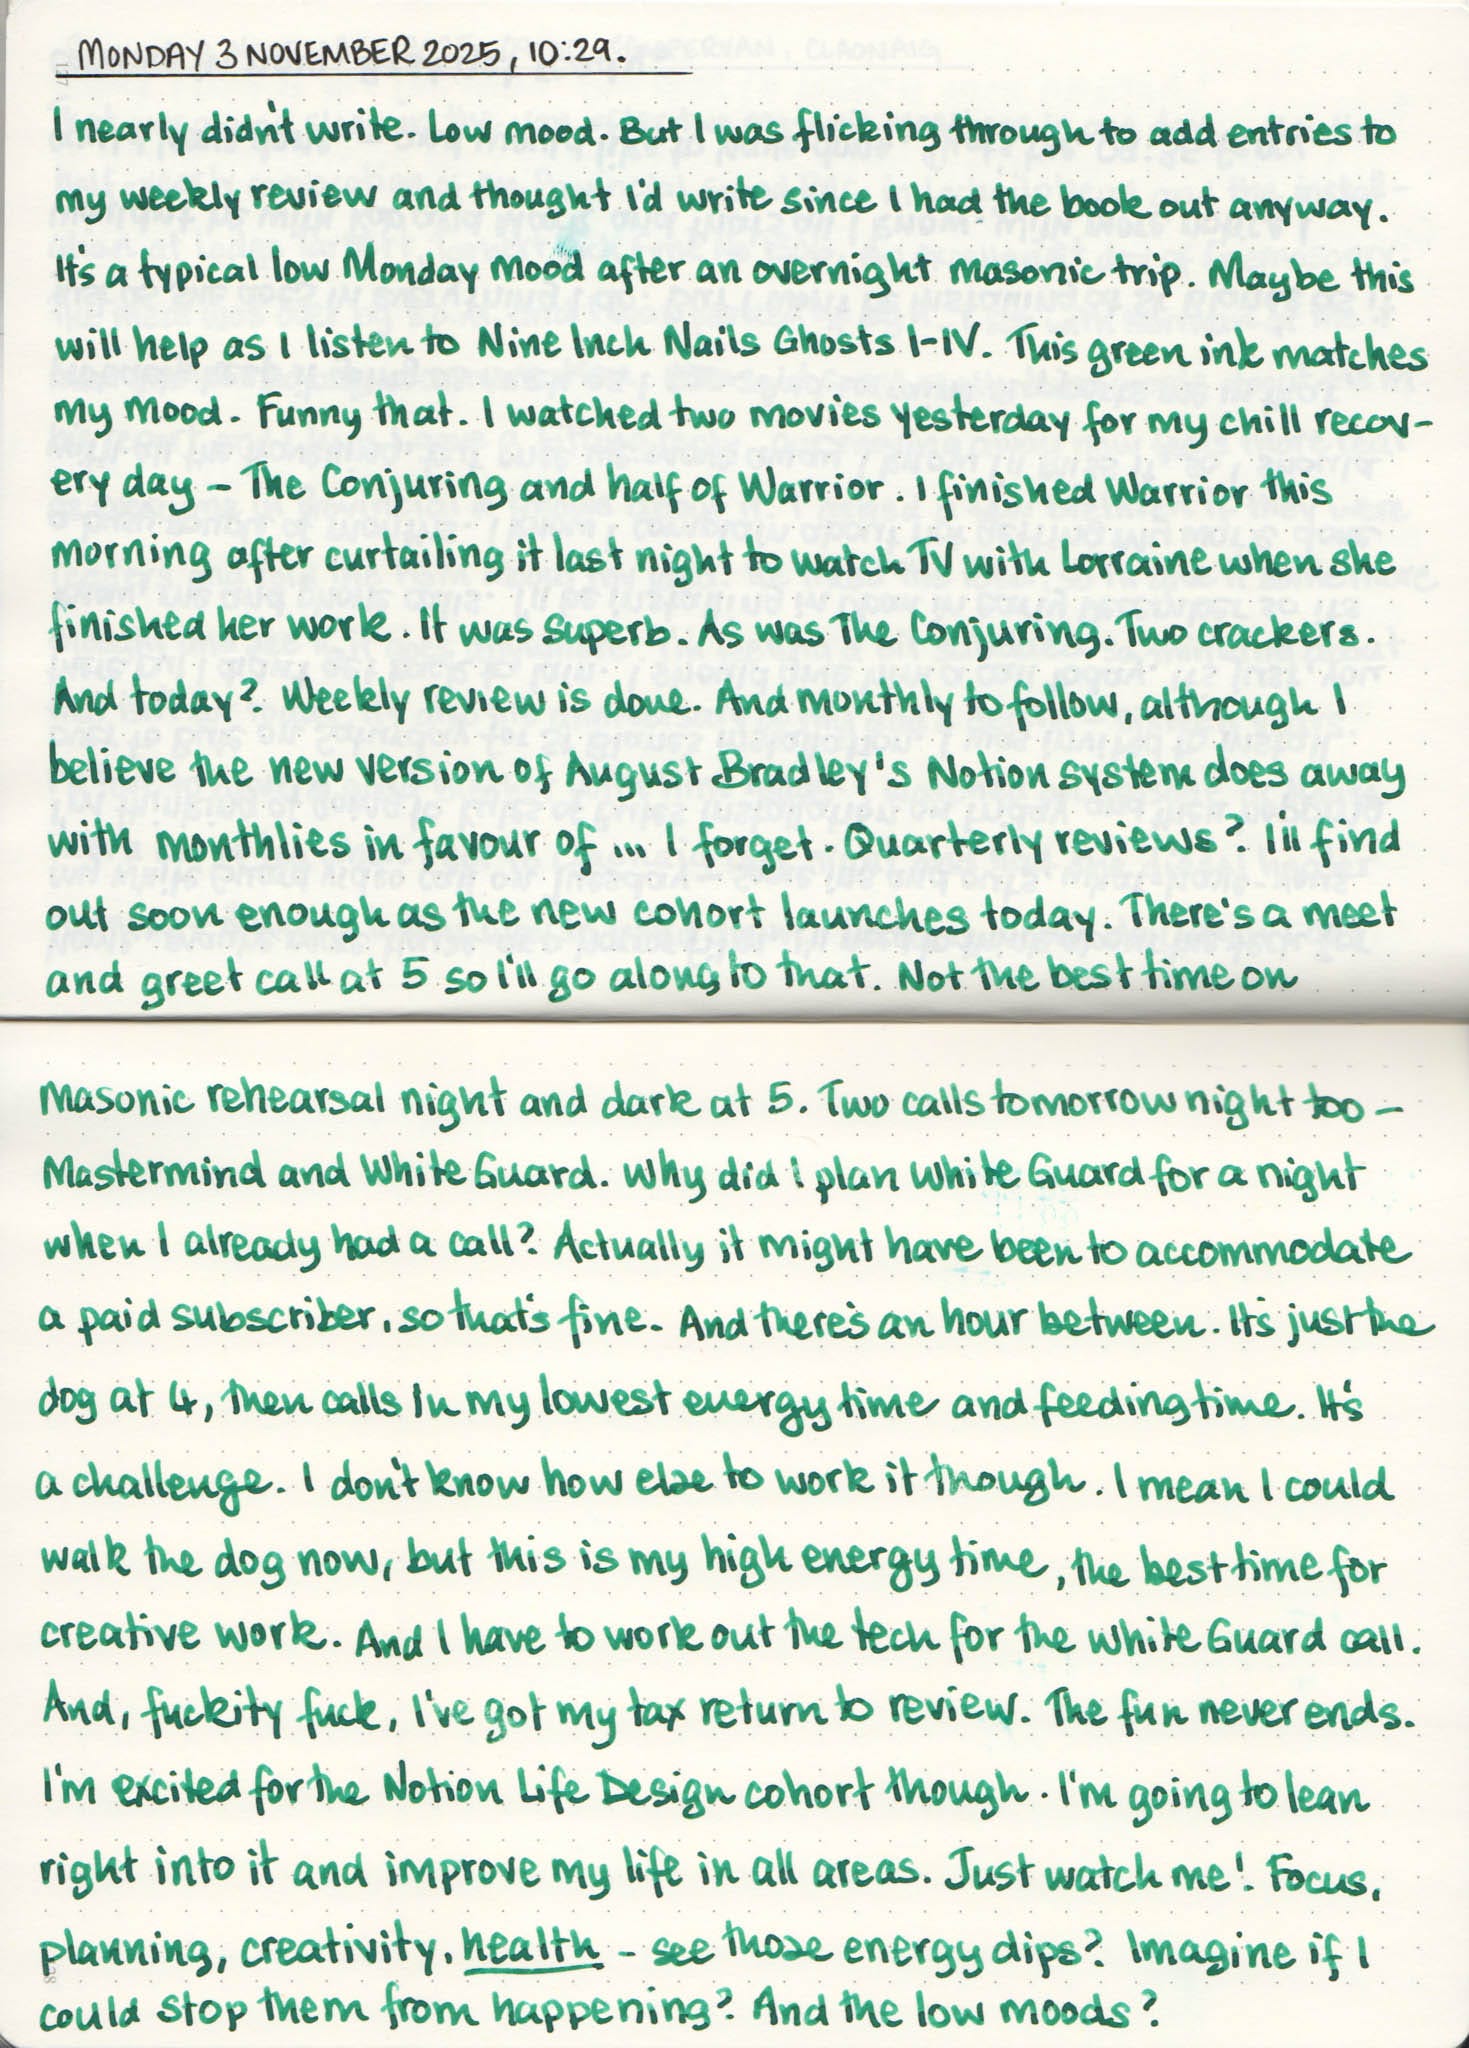 MONDAY 3 NOVEMBER 2025, 10:29.
I nearly didn't write. Low mood. But I was flicking through to add entries to
my weekly review and thought I'd write since I had the book out anyway.
It's a typical low Monday mood after an overnight masonic trip. Maybe this
will help as I listen to Nine Inch Nails Ghosts I-IV. This green ink matches
my mood. Funny that. I watched two movies yesterday for my chill recov-
ery day – The Conjuring and half of Warrior. I finished Warrior this
morning after curtailing it last night to watch TV with Lorraine when she
finished her work. It was superb. As was The Conjuring. Two crackers.
And today? Weekly review is done. And monthly to follow, although I
believe the new version of August Bradley's Notion system does away
with monthlies in favour of ... I forget. Quarterly reviews? I'll find
out soon enough as the new cohort launches today. There's a meet
and greet call at 5 so I'll go along to that. Not the best time on
Masonic rehearsal night and dark at 5. Two calls tomorrow night too –
Mastermind and White Guard. Why did I plan White Guard for a night
when I already had a call? Actually it might have been to accommodate
a paid subscriber, so that's fine. And there's an hour between. It's just the
dog at 4, then calls in my lowest energy time and feeding time. It's
a challenge. I don't know how else to work it though. I mean I could
walk the dog now, but this is my high energy time, the best time for
creative work. And I have to work out the tech for the White Guard call.
And, fuckity fuck, I've got my tax return to review. The fun never ends.
I'm excited for the Notion Life Design cohort though. I'm going to lean
right into it and improve my life in all areas. Just watch me! Focus,
planning, creativity, health – see those energy dips? Imagine if I
could stop them from happening? And the low moods?